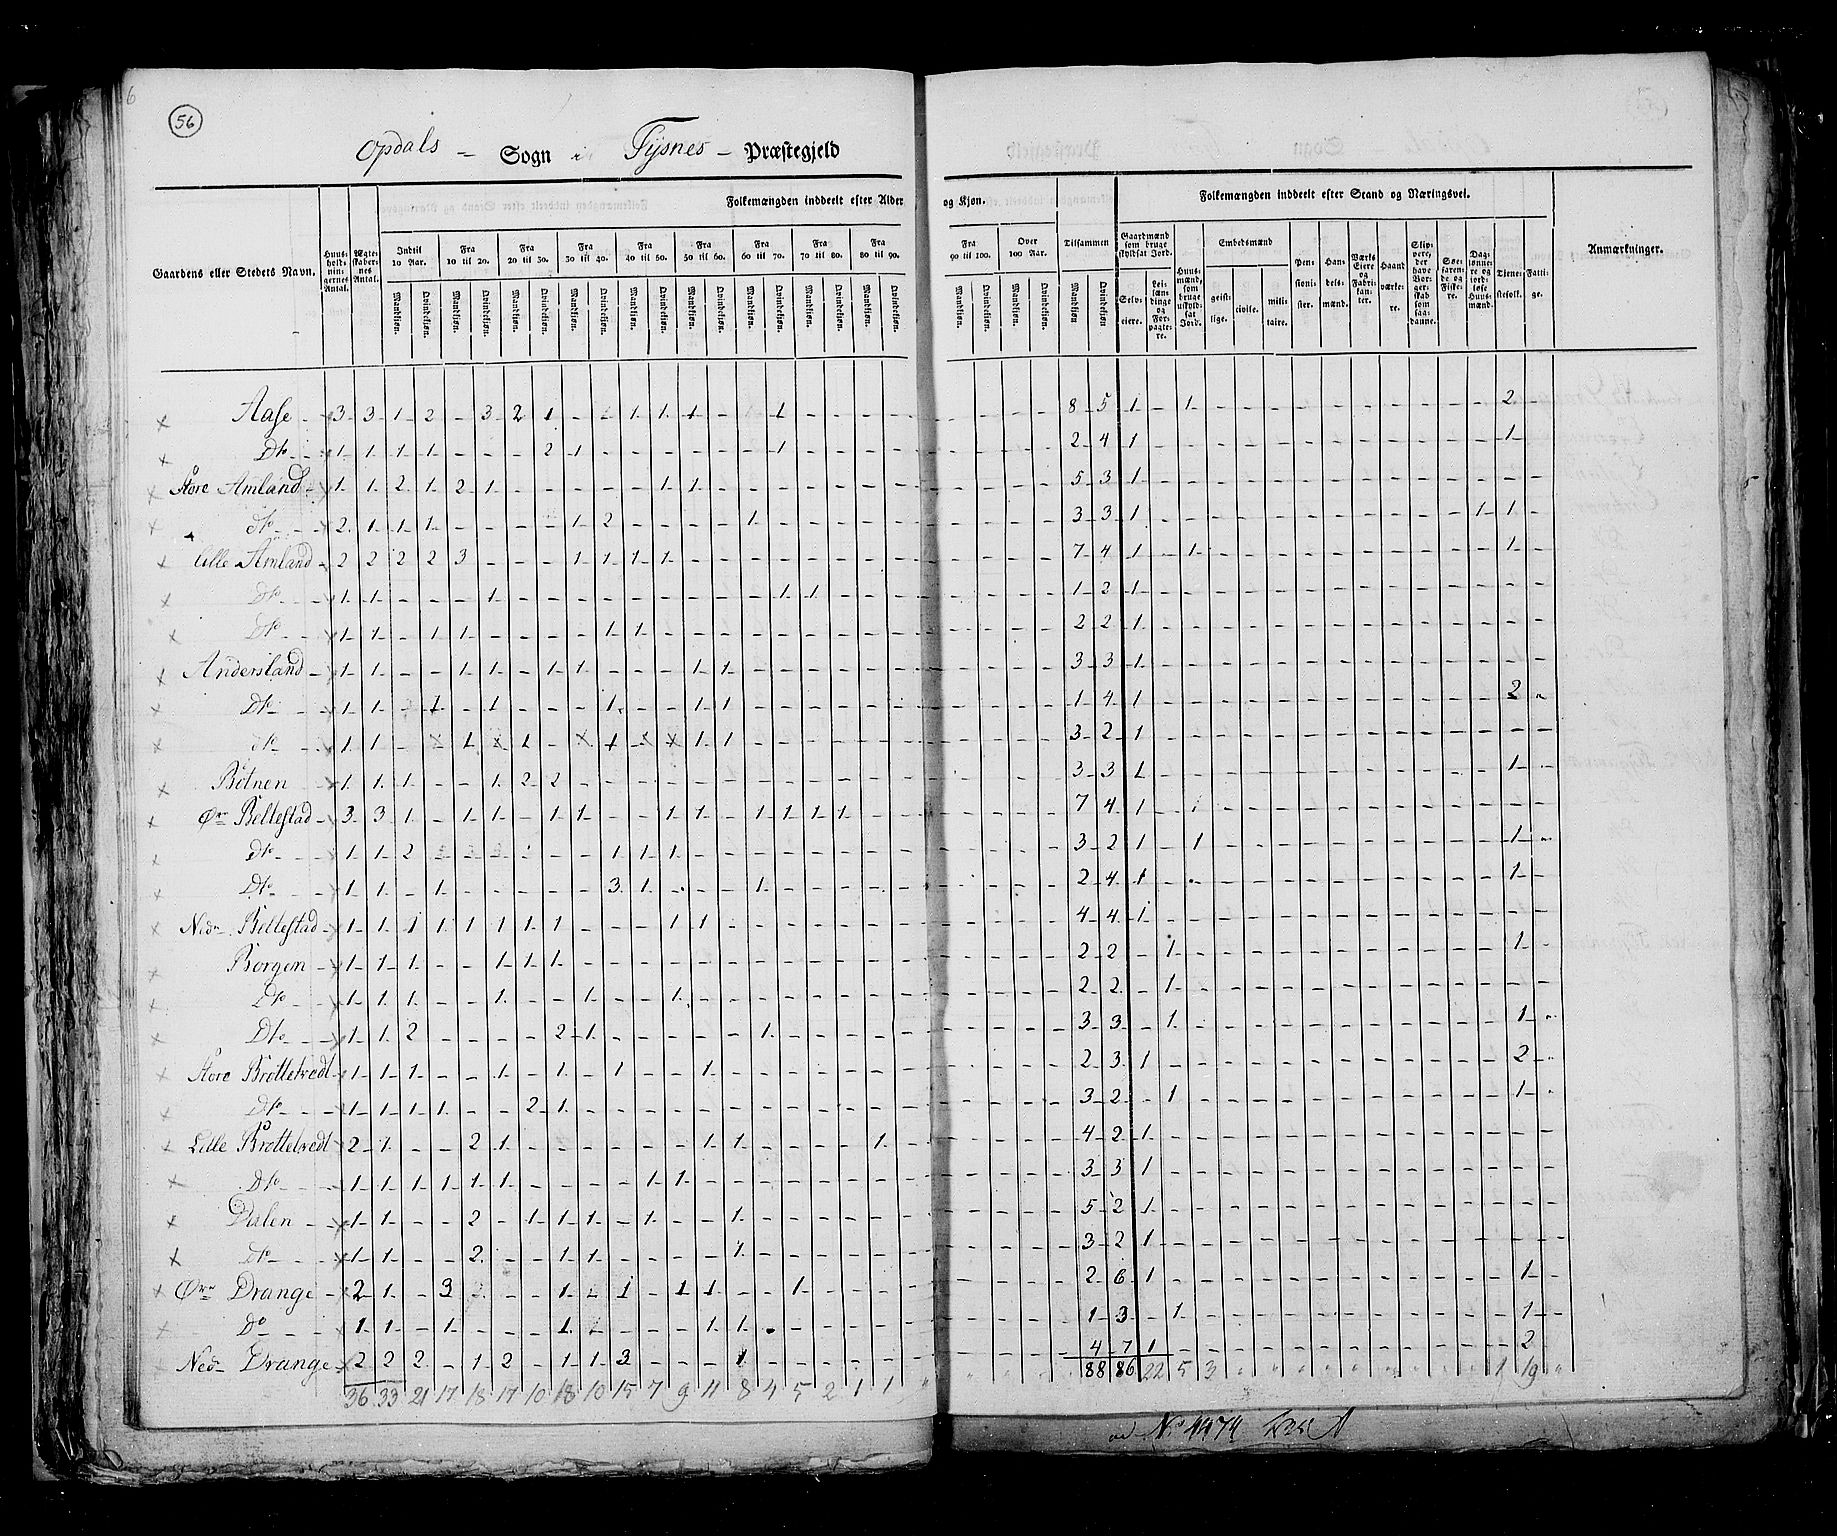 56
Opdals - Sogn i Tysnes - Præstegjeld
Folkemængden inddeelt efter Alder og Kjøn.
Folkemængden inddeelt efter Stand og Næringsvei.
Gaardens eller Stedets Navn.
Huusholdningernes Antal.
Ægteskabernes Antal.
Indtil 10 Aar.
Fra 10 til 20.
Fra 20 til 30.
Fra 30 til 40.
Fra 40 til 50.
Fra 50 til 60.
Fra 60 til 70.
Fra 70 til 80.
Fra 80 til 90.
Fra 90 til 100.
Over 100 Aar.
Tilsammen
Mandkjøn. Qvindekjøn.
Gaardmænd som bruge skyldsat Jord.
Selveiere.
Leilændinge og Forpagtere.
Huusmænd, som bruge uskyldsat Jord.
Embedsmænd
geistlige.
civile.
militaire.
Pensionister.
Handelsmænd.
Værks Eiere og Fabrikanter.
Haandværkere.
Skippere, der have Borgerskab som saadanne.
Søefarende og Fiskere.
Daglønnere og jordløse Huusmænd.
Tjenestefolk.
Fattige.
Anmærkninger.
Aase 3 3 1 2 - 3 2 1 - 1 1 1 1 - 1 8 5 1 - 1 2
Do 1 1 1 1 - - - 2 1 - - - - - - 1 2 4 1 1
Store Amland 1 1 2 1 2 1 - - - - - 1 1 5 3 1
do 2 1 1 1 - - - - 1 2 - - - - 1 3 3 1 1 1
Lille Amland 2 2 2 2 3 - - - 1 1 1 1 7 4 1 - 1 1
Do 1 1 - - - 1 - - - - - - - - - 1 1 1 2 1
Do 1 1 - 1 1 - - - - 1 1 2 2 1
Andersland 1 1 - - 1 1 - 1 1 - - - 1 1 3 3 1
Do 1 1 - 1 - 1 - - - 1 - - 1 1 1 4 1 2
do 1 1 3 2 1
Botnen 1 1 1 - - 1 2 2 3 3 1 1
Øre Bellestad 3 3 1 - 1 1 - 1 1 - - 1 1 - 1 1 1 1 7 4 1
Do 1 1 2 1 1 1 3 2 1 - 1 1
Do 1 1 - 1 - - - - - 3 1 - - - 1 2 4 1 1
Nedre Bellestad 1 1 1 1 1 1 1 1 - - - 1 1 4 4 1
Borgen 1 1 1 - - 1 1 1 2 2 - 1 1
Do 1 1 1 - - 1 - - 1 - - 1 2 2 - 1
Do 1 1 2 - - - - 2 1 - - - - - 1 3 3 - 1 1
Store Brottetvedt 1 1 1 - - 1 - 1 - 1 - - 1 2 3 1 2
Do 1 1 1 1 - - 2 1 3 2 - 1 1
Lille Brottetvedt 2 1 - - 2 1 - - - - - - 1 1 - - - - 1 4 2 1
Do 1 1 1 1 1 1 - - - - 1 1 3 3 1
Dalen 1 1 - - 2 - 1 1 1 - 1 - - 1 5 2 1
do 1 1 - - 2 - - 1 1 - - - - 1 3 2 1
Øre Drange 2 1 - 3 1 1 1 1 1 2 6 1 1
Do 1 1 - 1 - - - 1 1 1 1 3 - 1 1
Nedre Drange 2 2 2 - 1 2 - 1 1 3 - - - 1 4 7 1 2
36 33 21 17 18 17 10 18 10 15 7 9 11 8 4 5 2 1 1 88 86 22 5 3 1 19